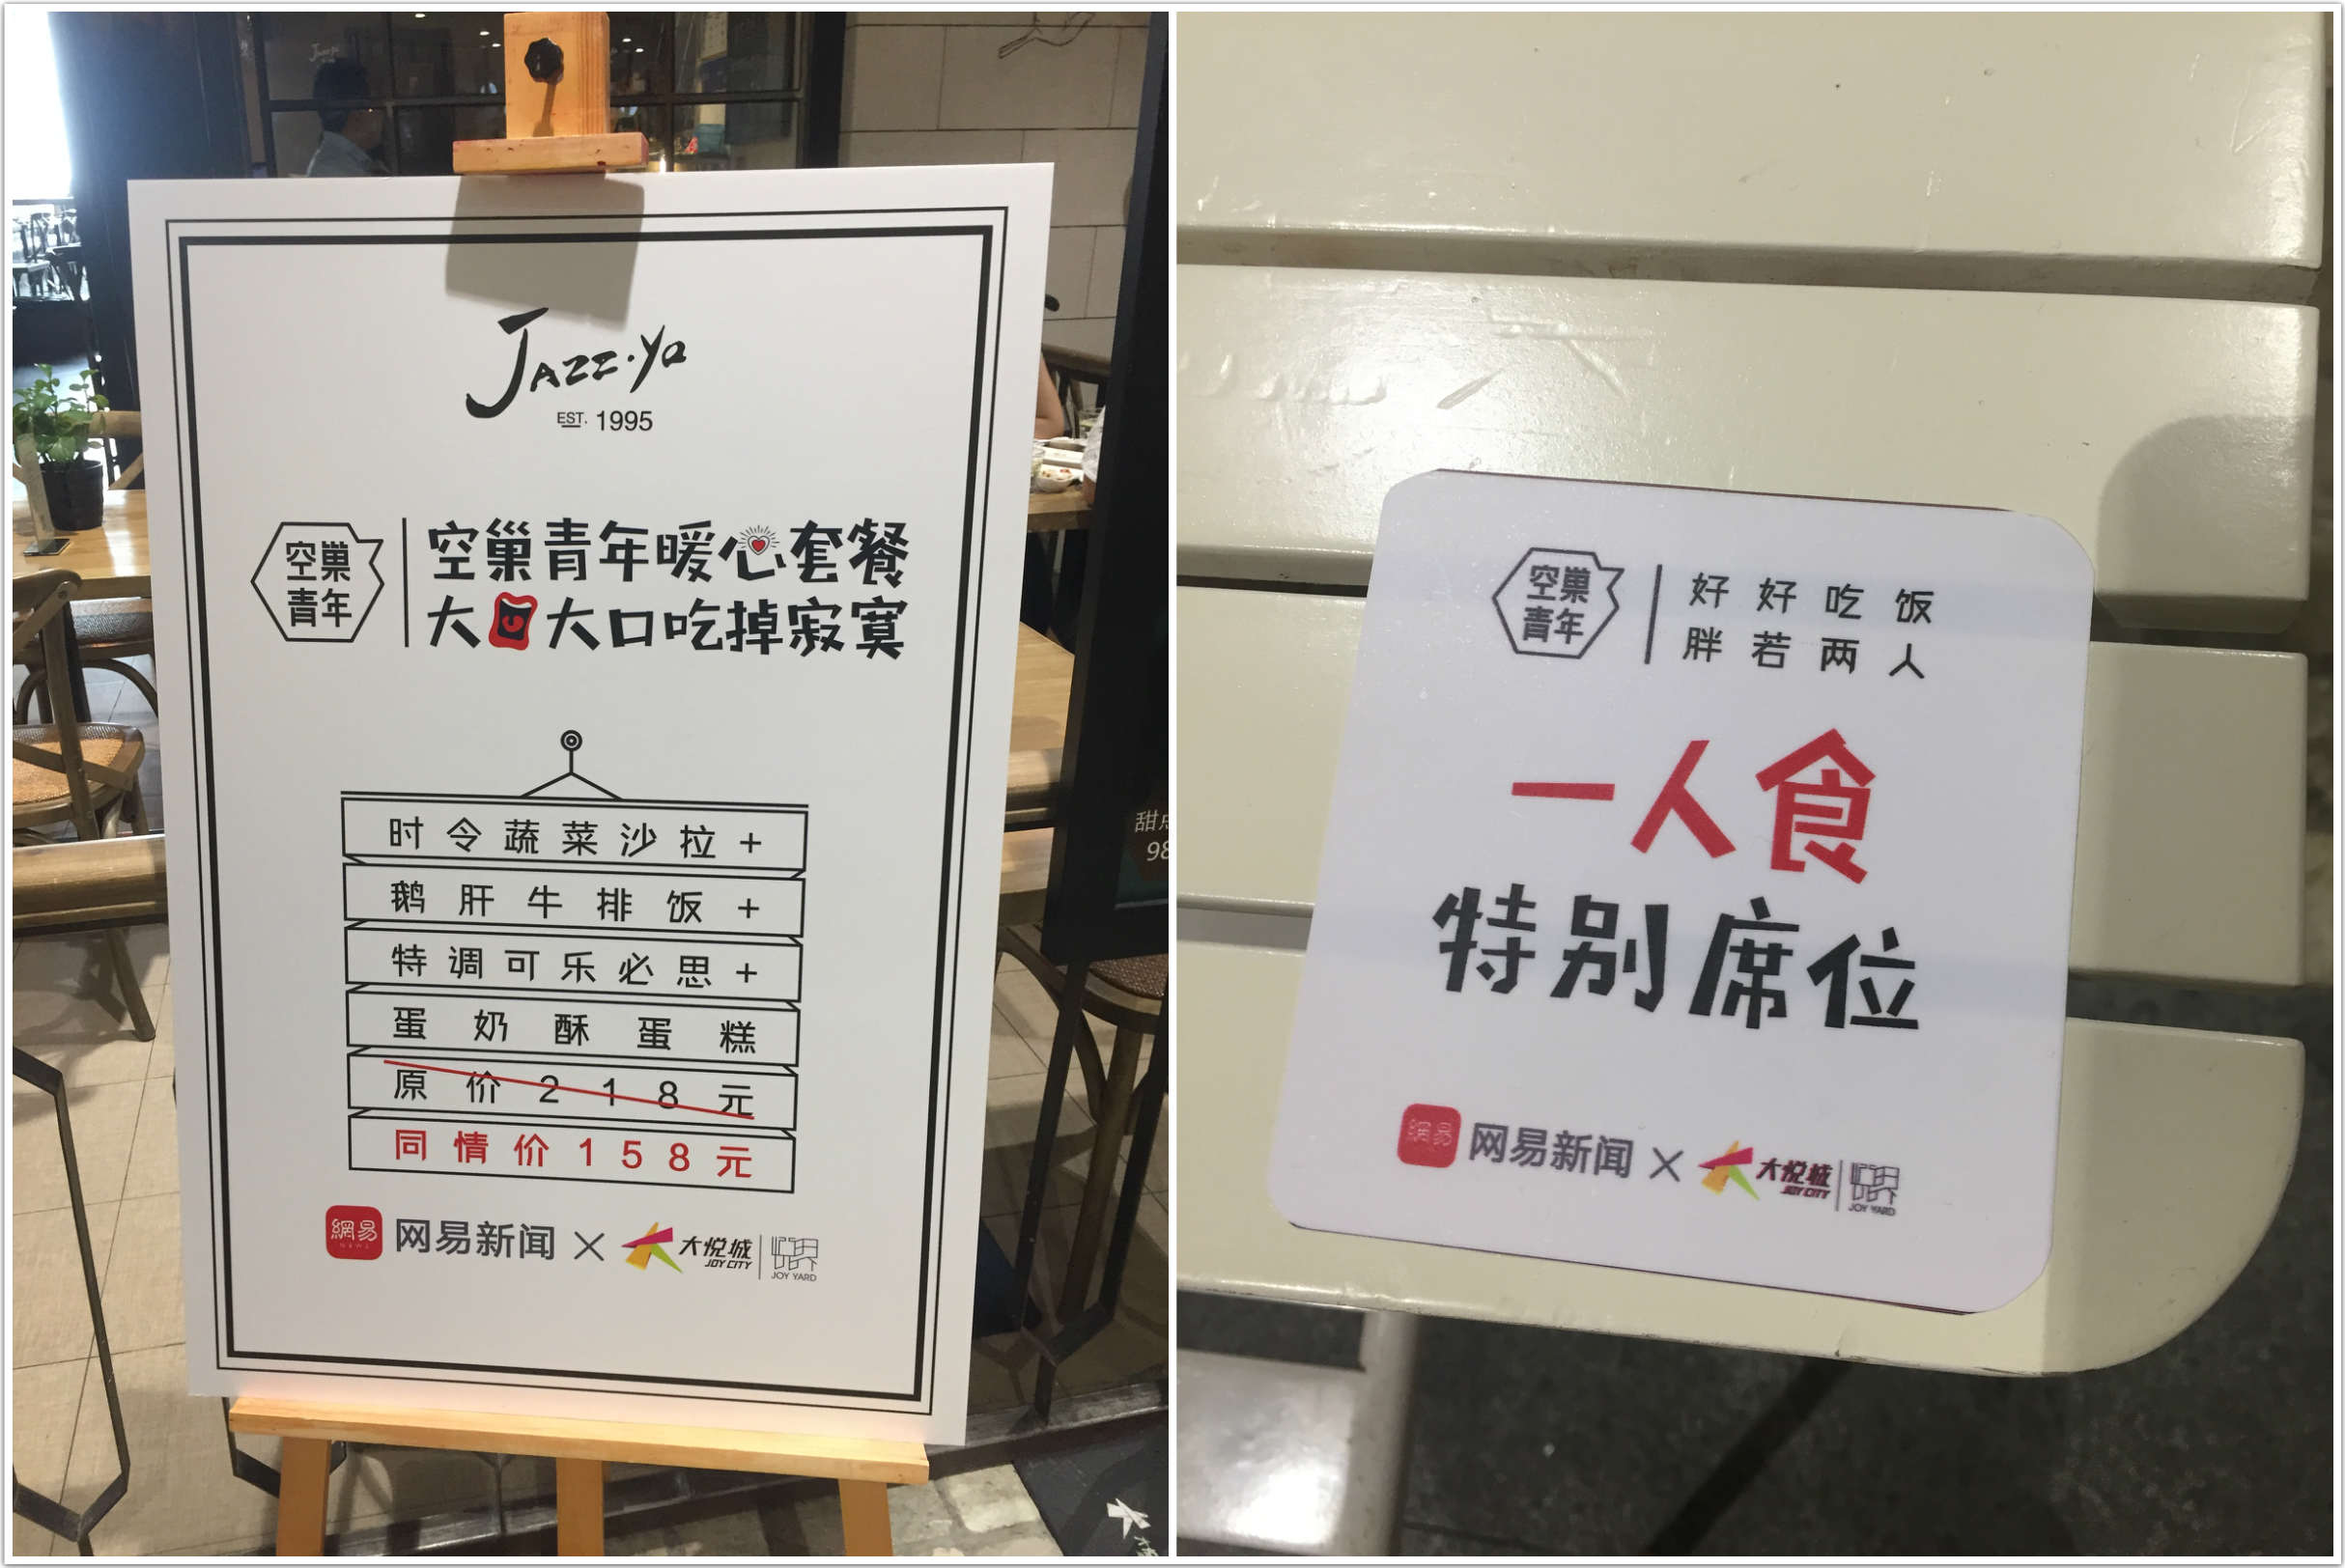 JAZZ·YA
EST. 1995
空巢
青年
空巢青年暖心套餐
大口大口吃掉寂寞
时令蔬菜沙拉+
鹅肝牛排饭+
特调可乐必思+
蛋奶酥蛋糕
原价218元
同情价158元
網易
NEWS
网易新闻 × 大悦城
JOY CITY
JOY YARD
甜点
98
空巢
青年
好好吃饭
胖若两人
一人食
特别席位
網易
网易新闻 × 大悦城
JOY CITY
JOY YARD